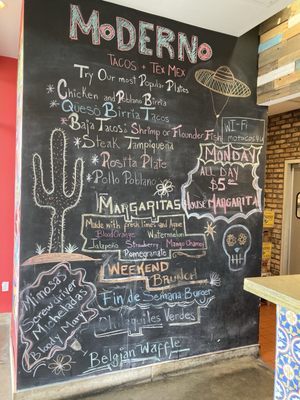 MODERNO
TACOS + TEX MEX
Try Our most Popular Plates
Chicken and Poblano Birria
Queso Birria Tacos
Baja Tacos: Shrimp or Flounder Fish
Steak Tampiqueña
Rosita Plate
Pollo Poblano
WI-FI
MONDAY
ALL DAY
$5
HOUSE MARGARITA
MARGARITAS
Made with fresh limes and Agave
Blood Orange Watermelon
Jalapeño Strawberry Mango Chamoy
Pomegranate
WEEKEND
BRUNCH
Fin de Semana Burger
Chilaquiles Verdes
Belgian Waffle
Mimosas
Screwdriver
Micheladas
Bloody Mary